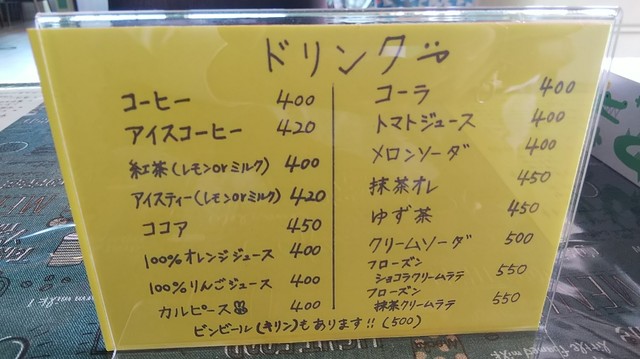 ドリンク
コーヒー 400
アイスコーヒー 420
紅茶(レモンorミルク) 400
アイスティー(レモンorミルク) 420
ココア 450
100%オレンジジュース 400
100%りんごジュース 400
カルピース 400
コーラ 400
トマトジュース 400
メロンソーダ 400
抹茶オレ 450
ゆず茶 450
クリームソーダ 500
フローズン
ショコラクリームラテ 550
フローズン
抹茶クリームラテ 550
ビンビール(キリン)もあります!!(500)